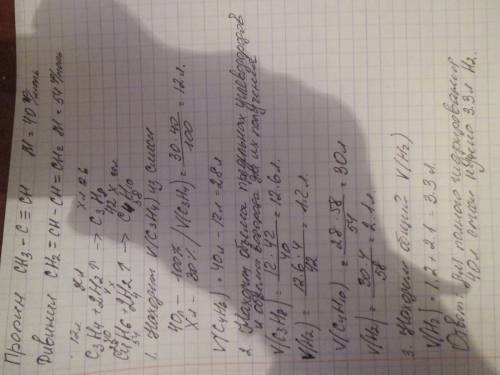 Пропин CH₃ - C ≡ CH M = 40 г/моль
Дивинил CH₂ = CH - CH = CH₂ M = 54 г/моль
12л
C₃H₄ + 2H₂↑ → C₃H₈
C₄H₆ + 2H₂↑ → C₄H₁₀
1. Находит V(C₃H₄) из смеси
40л - 100%
Xл - 30% / V(C₃H₄) = 30·40/100 = 12л.
V(C₄H₆) = 40л - 12л = 28л
2. Находит объемы предельных углеводородов
и объемы водорода для их получения
V(C₃H₈) = 12·42/40 = 12.6л.
V(H₂) = 12.6·4/42 = 1.2л.
V(C₄H₁₀) = 28·58/54 = 30л
V(H₂) = 30·4/58 = 2.1л.
3. Находит общий V(H₂)
V(H₂) = 1.2 + 2.1 = 3.3л.
Ответ: для полного гидрирования
40л смеси нужно 3.3л H₂.